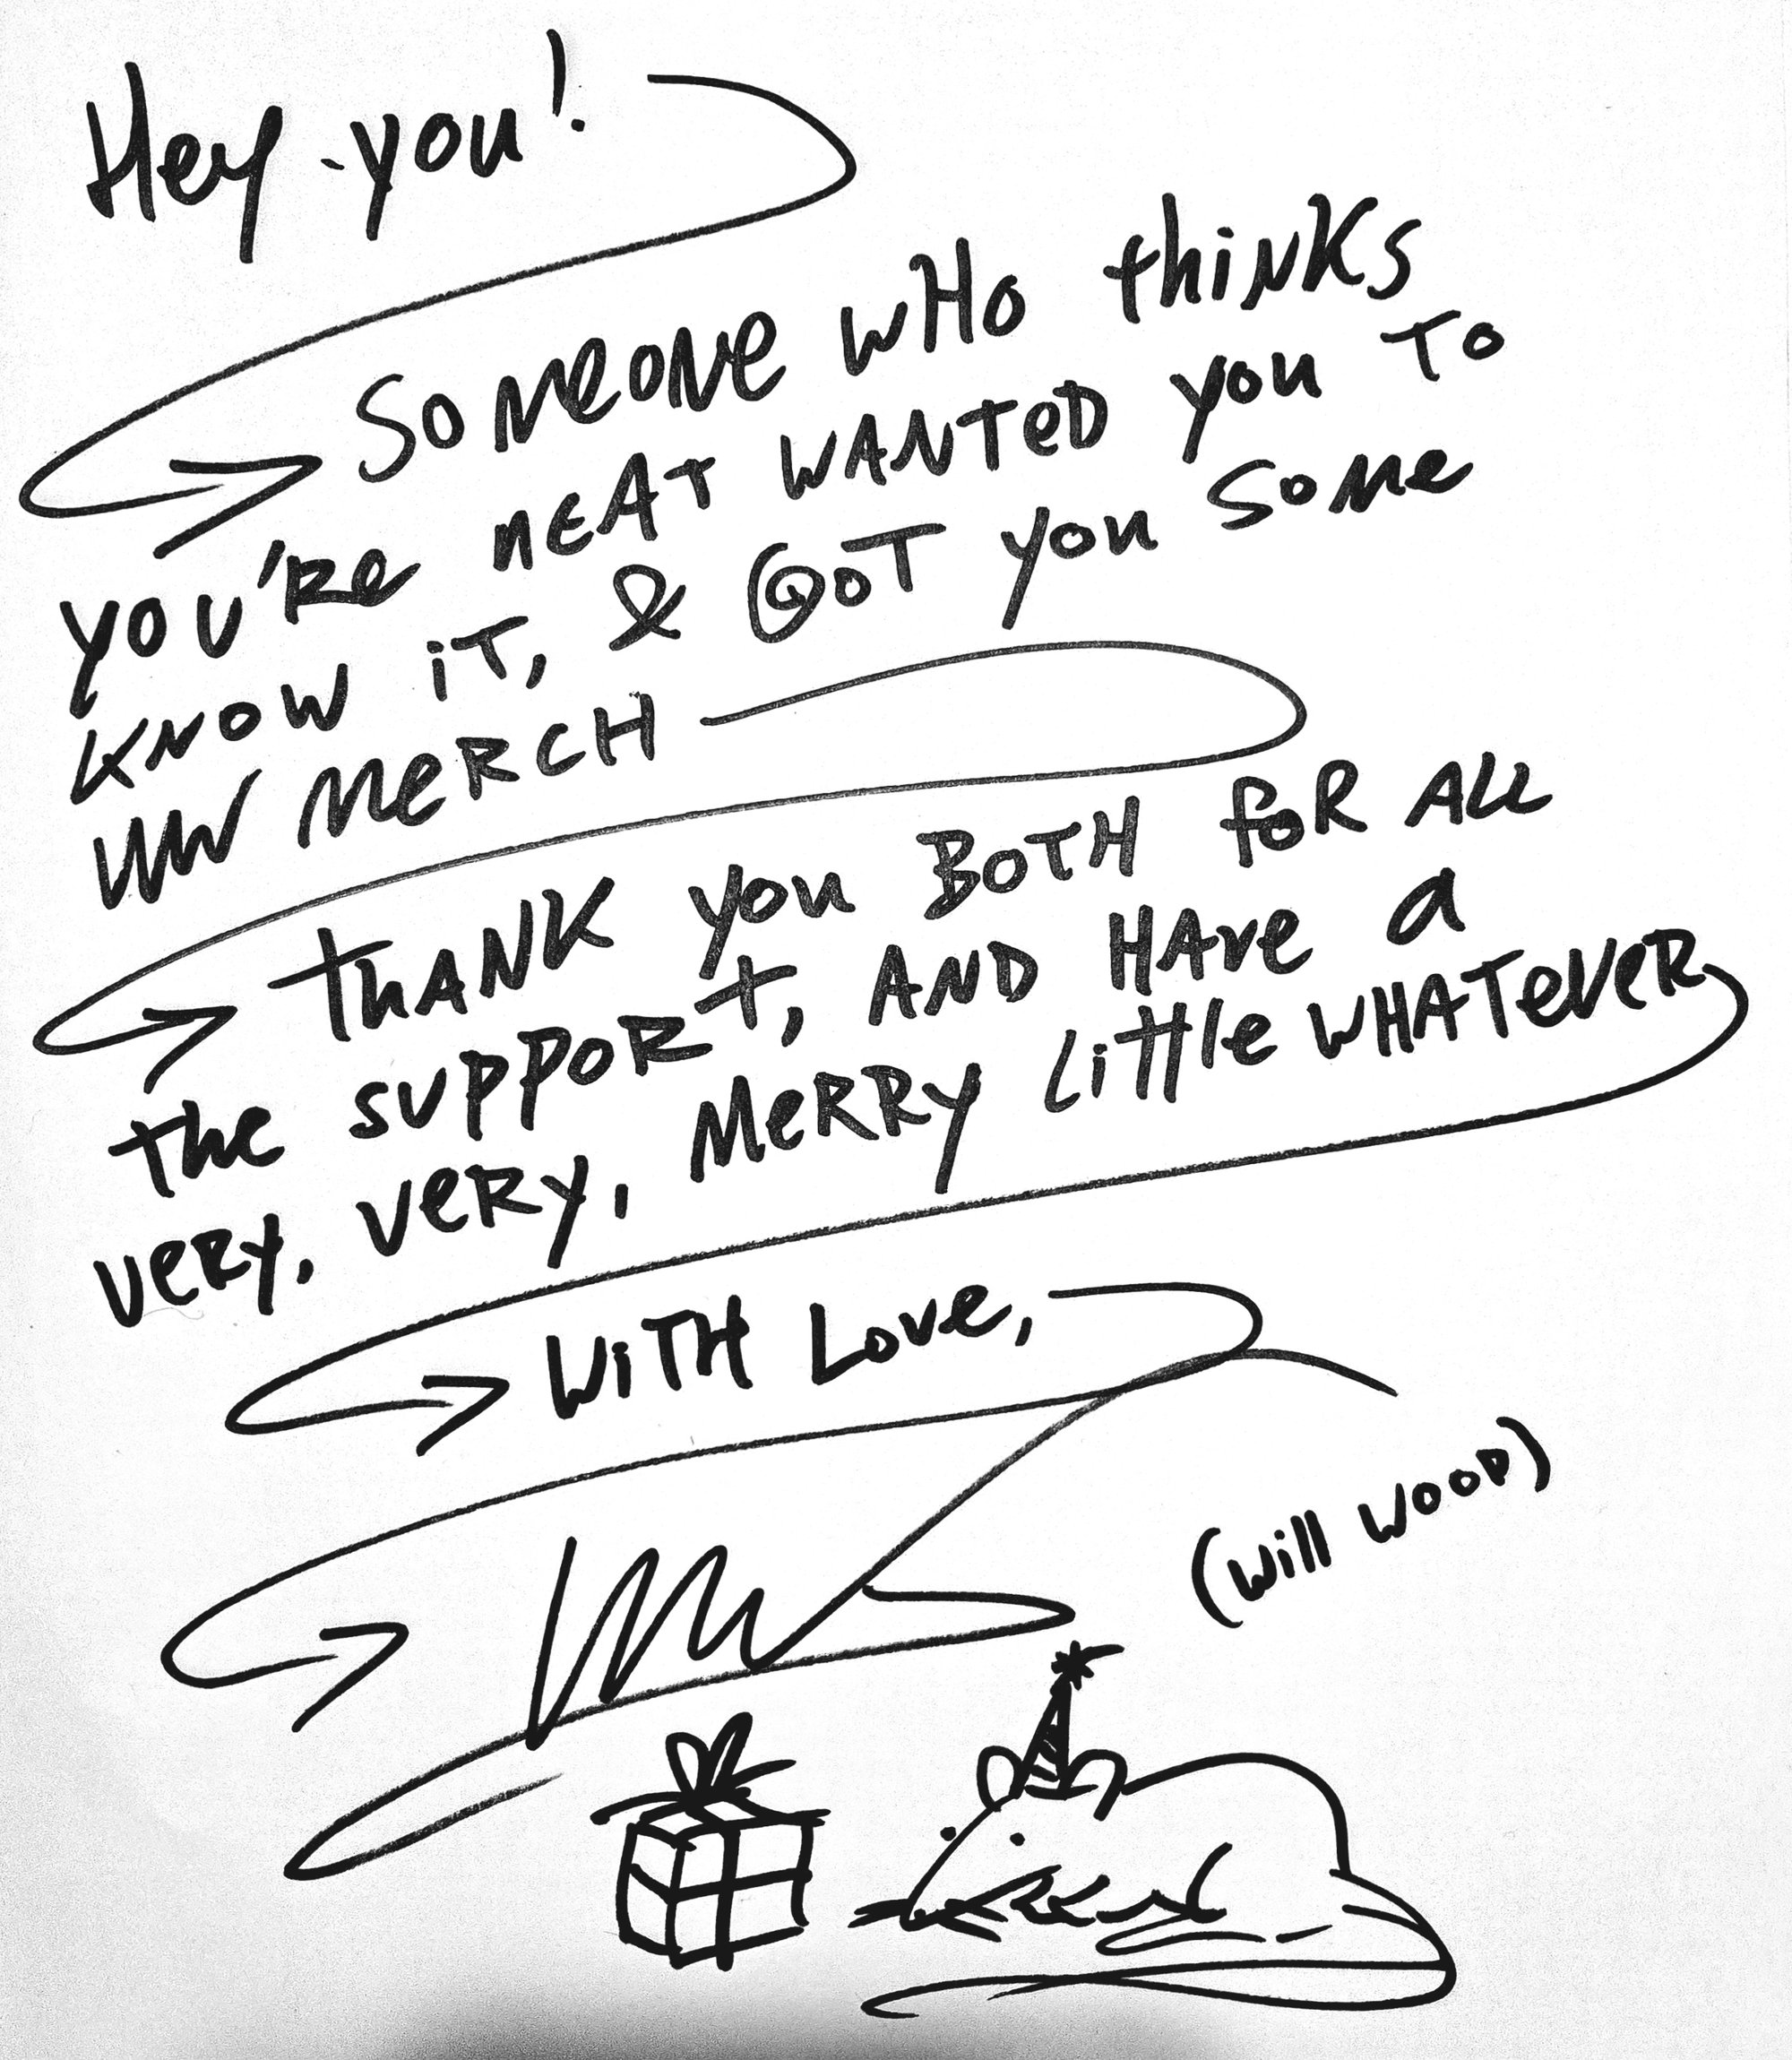 Hey you!
SOMEONE WHO thinks
YOU'RE NEAT WANTED YOU TO
KNOW iT, & GOT YOU SOME
WW MERCH
THANK YOU BOTH FOR ALL
the SUPPORT, AND HAVE a
VERY, VERY, MERRY LITTLE WHATEVER
WITH LOVE,
WW
(Will WOOD)